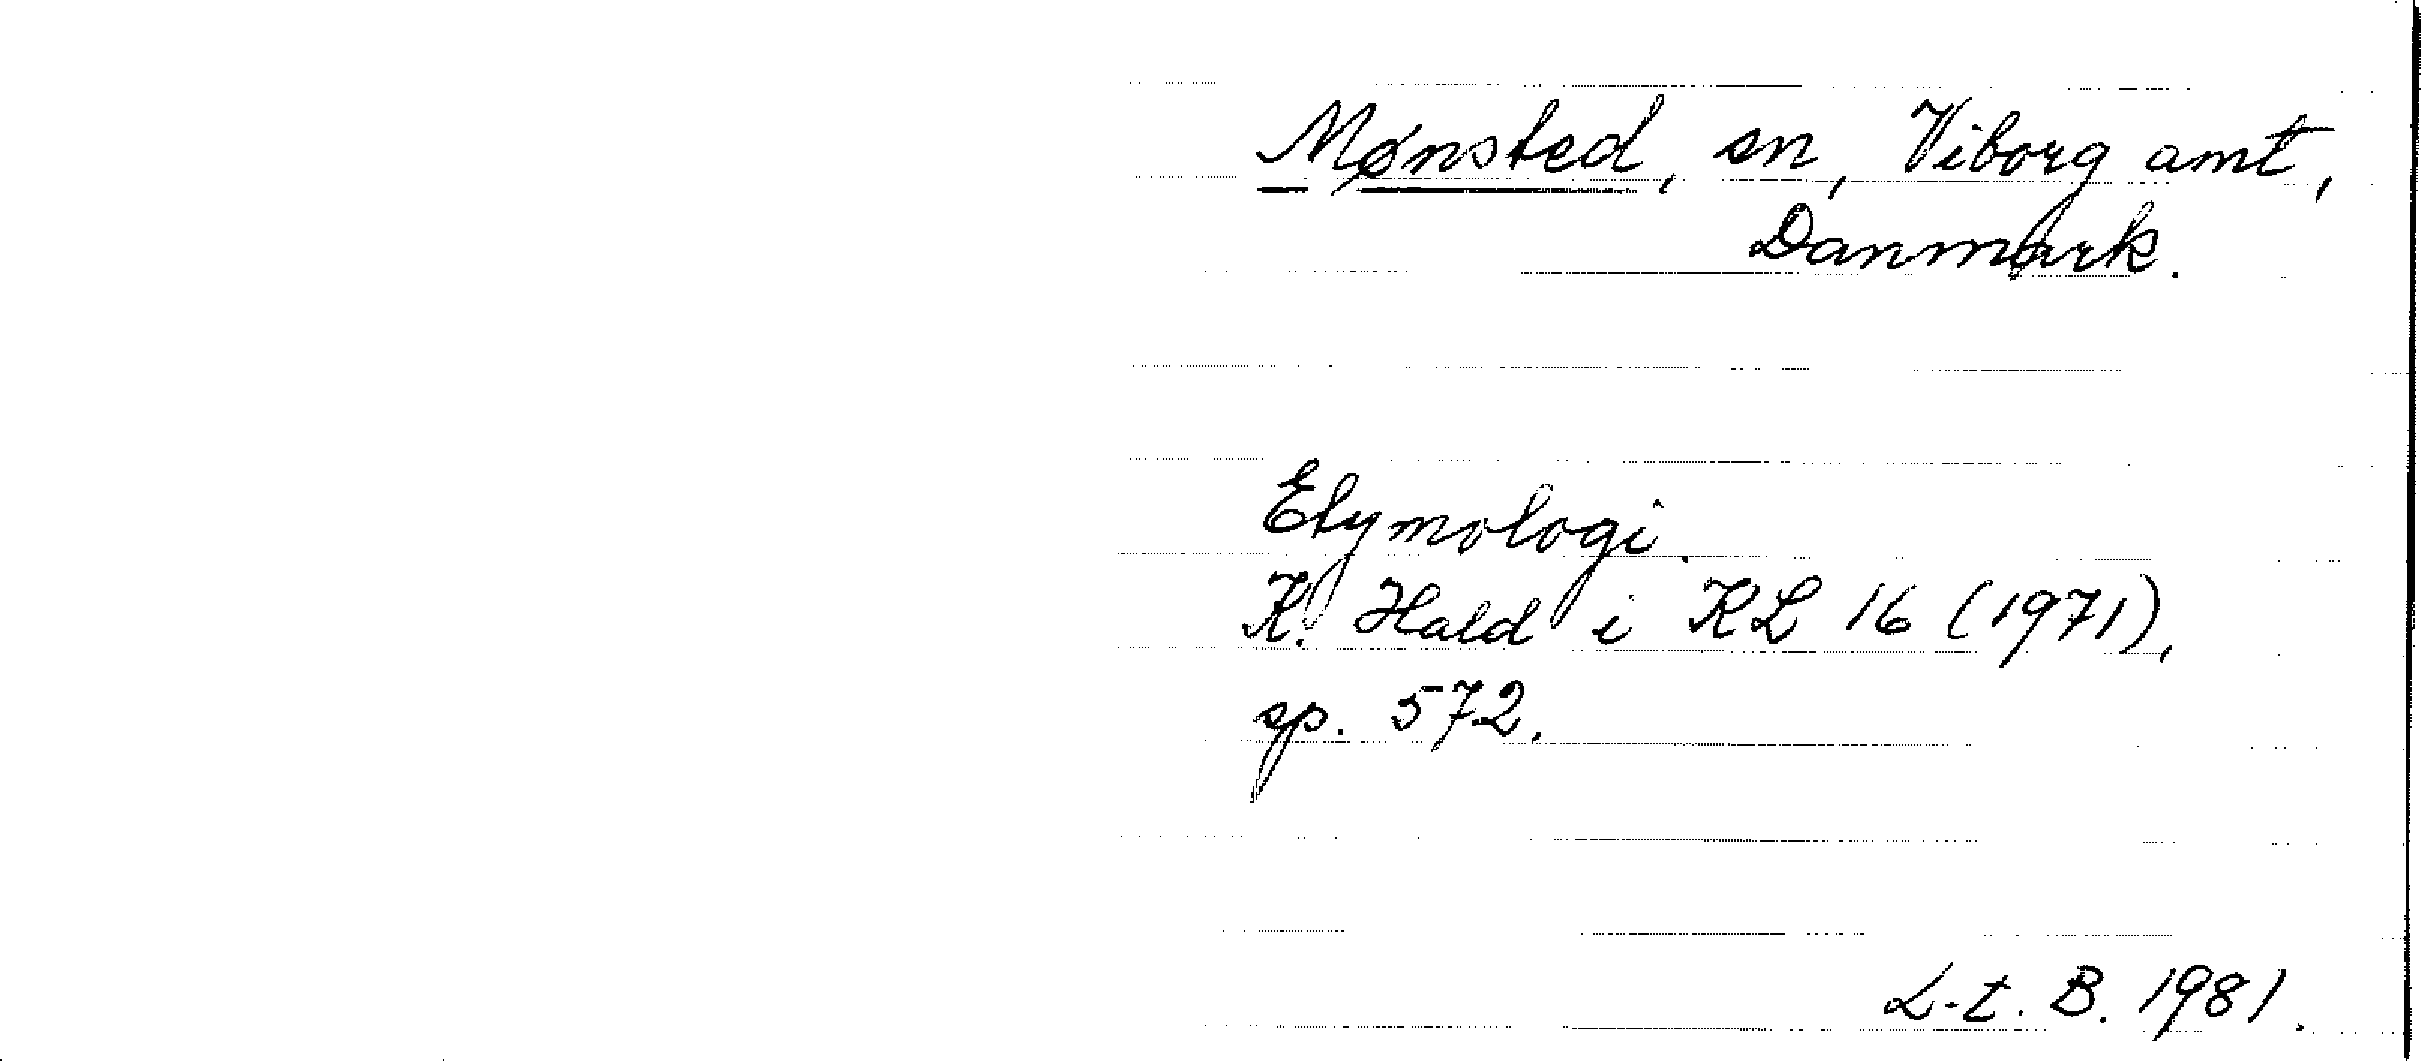 Mønsted, sn, Viborg amt,
Danmark.
Etymologi.
K. Hald i KL 16 (1971),
sp. 572.
L-t. B. 1981.